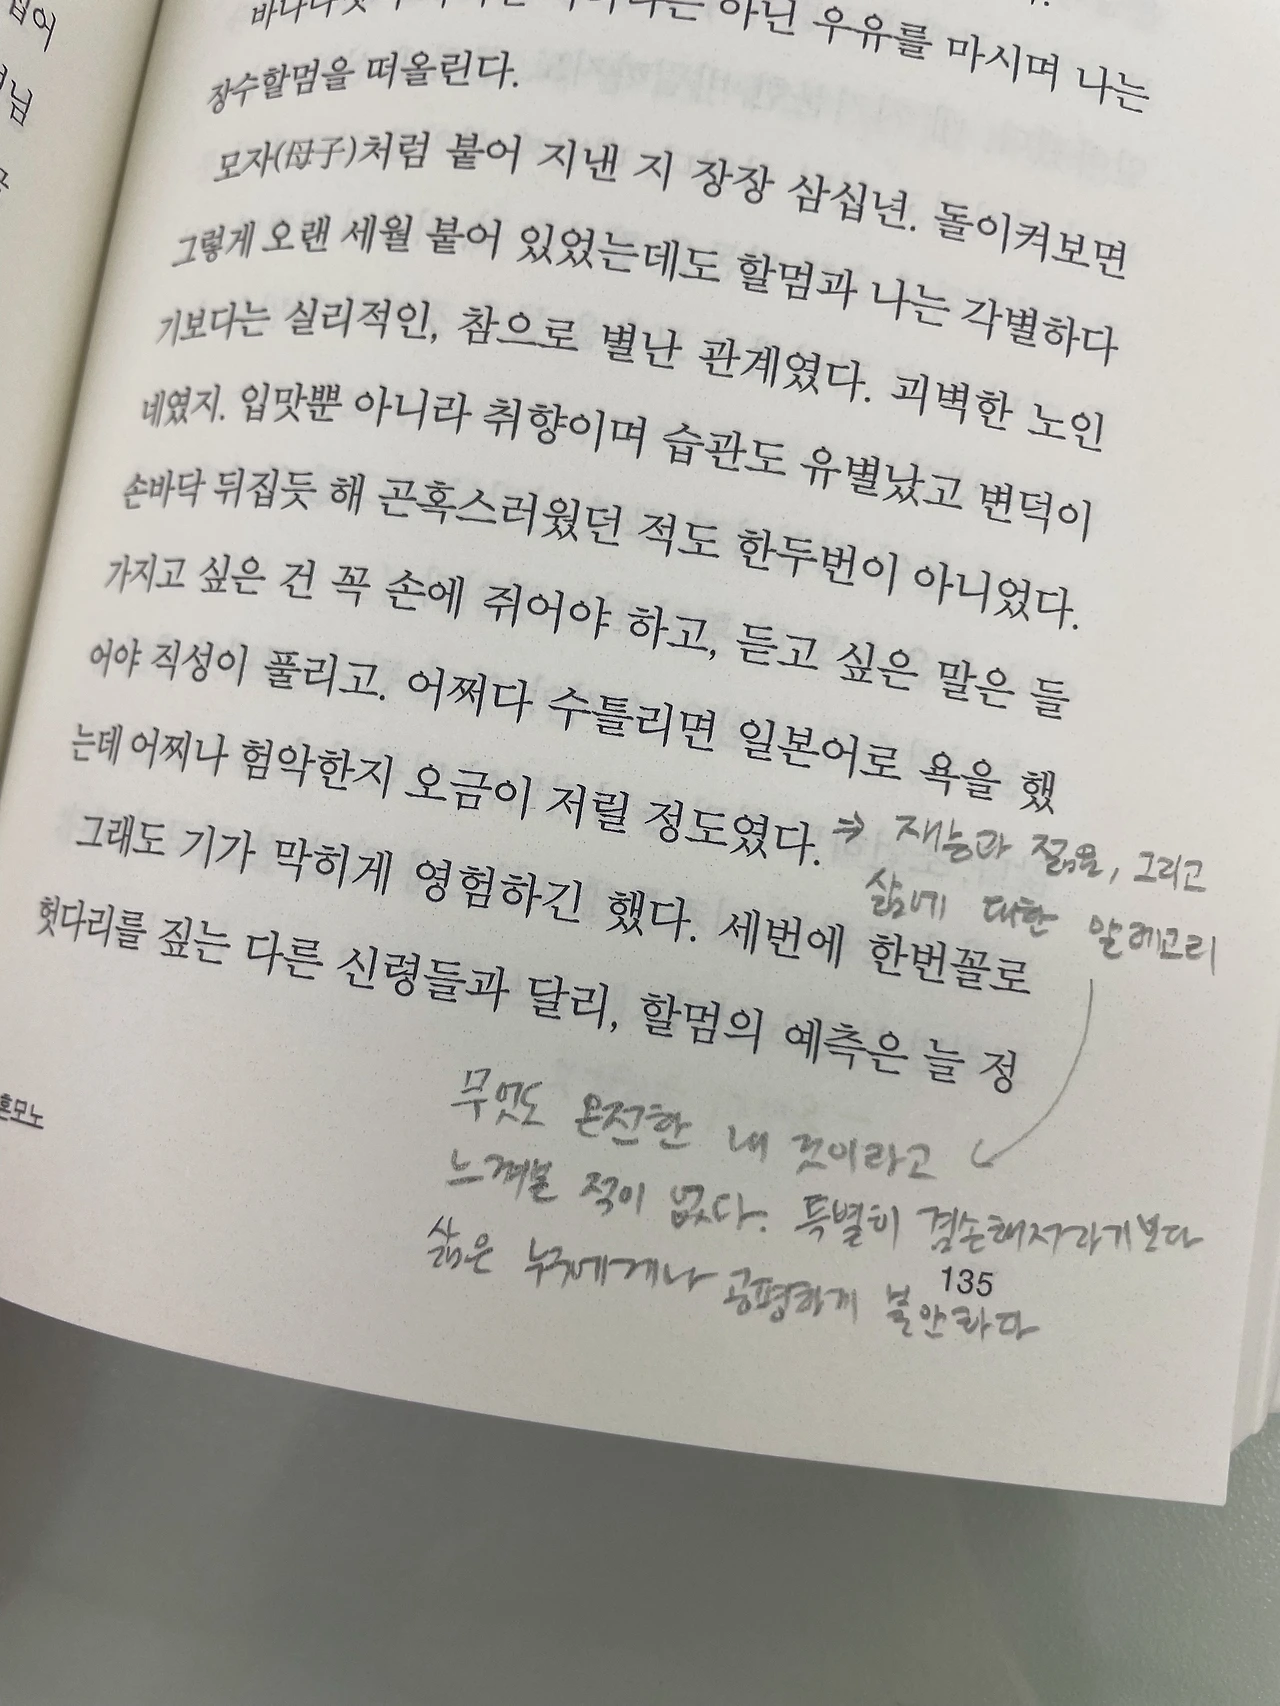 아닌 우유를 마시며 나는
장수할멈을 떠올린다.
모자(母子)처럼 붙어 지낸 지 장장 삼십년. 돌이켜보면
그렇게 오랜 세월 붙어 있었는데도 할멈과 나는 각별하다
기보다는 실리적인, 참으로 별난 관계였다. 괴벽한 노인
네였지. 입맛뿐 아니라 취향이며 습관도 유별났고 변덕이
손바닥 뒤집듯 해 곤혹스러웠던 적도 한두번이 아니었다.
가지고 싶은 건 꼭 손에 쥐어야 하고, 듣고 싶은 말은 들
어야 직성이 풀리고. 어쩌다 수틀리면 일본어로 욕을 했
는데 어찌나 험악한지 오금이 저릴 정도였다.
⇒ 재능과 젊음, 그리고
삶에 대한 알레고리
그래도 기가 막히게 영험하긴 했다. 세번에 한번꼴로
헛다리를 짚는 다른 신령들과 달리, 할멈의 예측은 늘 정
무엇도 온전한 내 것이라고
느껴본 적이 없다. 특별히 겸손해자라기보다
삶은 누구에게나 공평하게 불안하다
혼모노
135